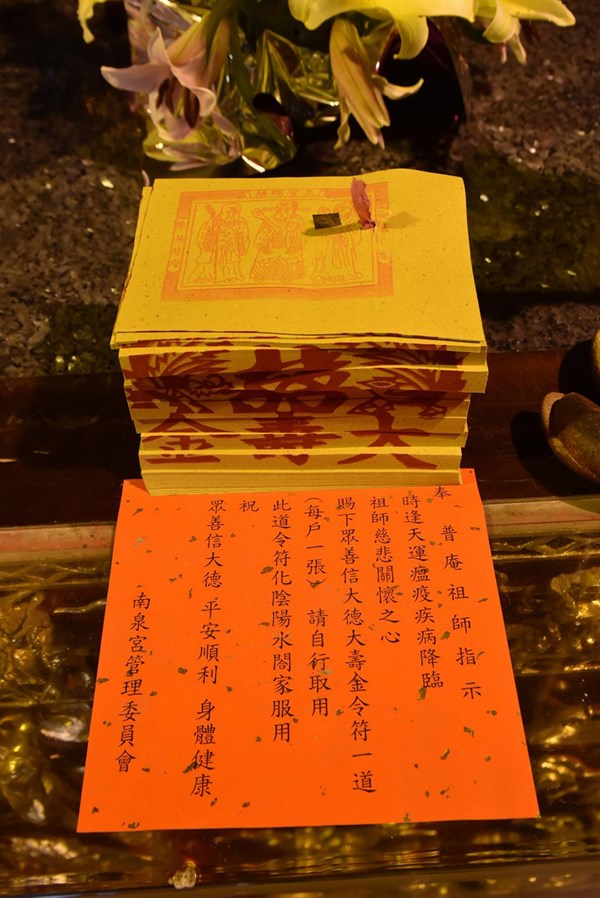 大壽金
奉 普庵祖師指示
時逢天運瘟疫疾病降臨
祖師慈悲關懷之心
賜下眾善信大德大壽金令符一道
(每戶一張) 請自行取用
此道令符化陰陽水閤家服用
祝
眾善信大德 平安順利 身體健康
南泉宮管理委員會